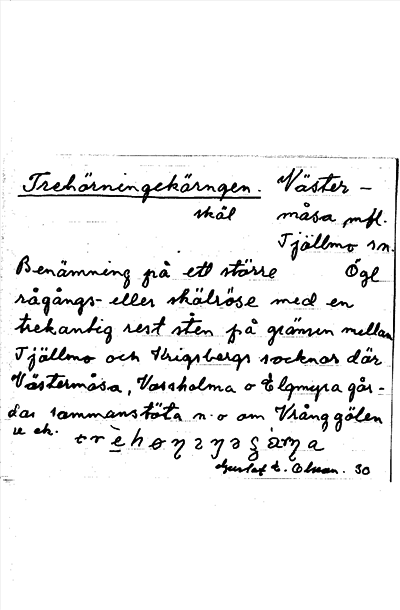 Trehörningekärngen. Väster-
skäl måsa mfl.
Tjällmo sn.
Benämning på ett större Ögl
rågångs- eller skälröse med en
trekantig rest sten på gränsen mellan
Tjällmo och Krigsbergs socknar där
Västermåsa, Vassholma o Älgmyra går-
dar sammanstöta n.o om Vrånggölen
Gustaf E. Olsson. 30